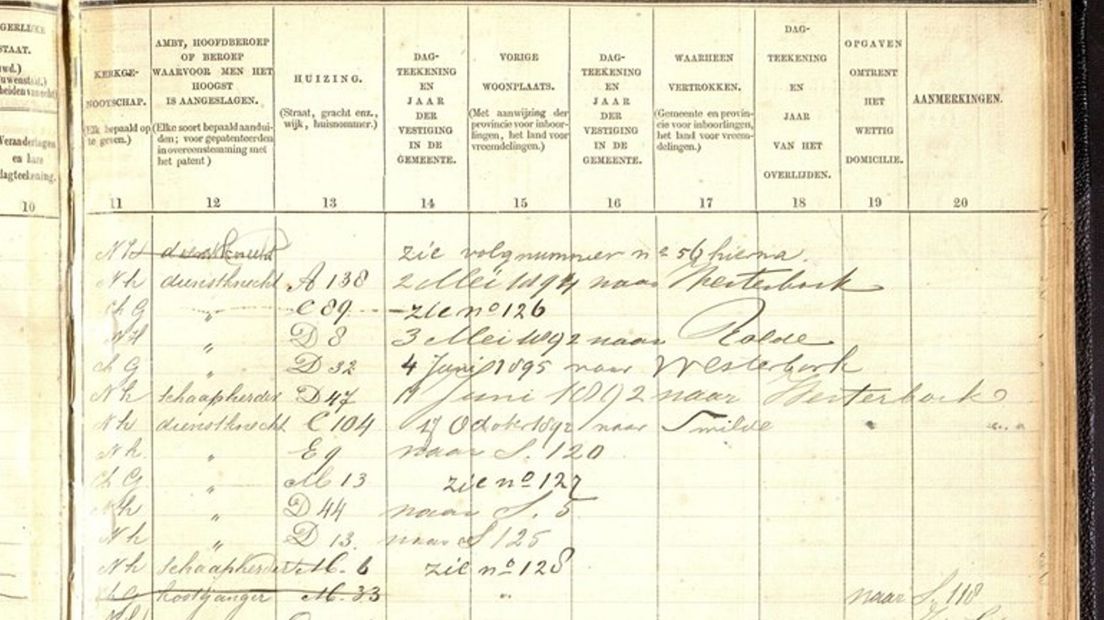 GERLIJKE
STAAT.
10
KERKGE-
NOOTSCHAP.
(Elk bepaald op
te geven.)
11
AMBT, HOOFDBEROEP
OF BEROEP
WAARVOOR MEN HET
HOOGST
IS AANGESLAGEN.
(Elke soort bepaald aandui-
den; voor gepatenteerden
in overeenstemming met
het patent)
12
HUIZING.
(Straat, gracht enz.,
wijk, huisnommer.)
13
DAG-
TEEKENING
EN
JAAR
DER
VESTIGING
IN DE
GEMEENTE.
14
VORIGE
WOONPLAATS.
(Met aanwijzing der
provincie voor inboor-
lingen, het land voor
vreemdelingen.)
15
DAG-
TEEKENING
EN
JAAR
DER
VESTIGING
IN DE
GEMEENTE.
16
WAARHEEN
VERTROKKEN.
(Gemeente en provin-
cie voor inboorlingen,
het land voor vreem-
delingen.)
17
DAG-
TEEKENING
EN
JAAR
VAN HET
OVERLIJDEN.
18
OPGAVEN
OMTRENT
HET
WETTIG
DOMICILIE.
19
AANMERKINGEN.
20
NH dienstknecht zie volgnummer no 56 hierna.
Nh dienstknecht A 138 2 Mei 1894 naar Westerbork
Ch G " C 89 zie no 126
NH " D 8 3 Mei 1892 naar Rolde
Ch G " D 32 4 Juni 1895 naar Westerbork
Nh schaapherder D 47 Juni 1892 naar Westerbork
Nh dienstknecht C 104 17 October 1892 naar Smilde
Nh " E 9 naar S. 120
Ch G " M 13 zie no 127
Nh " D 44 naar S. 5
Nh " D 13. naar S 125
Nh schaapherder M. 6 zie no 128
Ch G kostganger M. 33 " naar S. 118